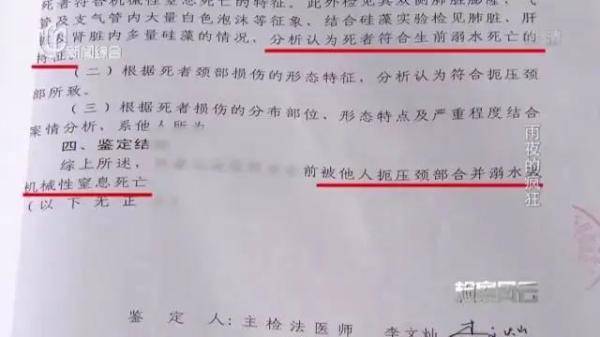 死者符合机械性窒息死亡的特征。此外检见其双侧肺脏膨隆，气
管及支气管内大量白色泡沫等征象，结合硅藻实验检见肺脏、肝
肾脏内多量硅藻的情况，分析认为死者符合生前溺水死亡的
特征。
新闻综合
（二）根据死者颈部损伤的形态特征，分析认为符合扼压颈
部所致。
（三）根据死者损伤的分布部位、形态特点及严重程度结合
案情分析，系他人所为
四、鉴定结
综上所述，
前被他人扼压颈部合并溺水致
机械性窒息死亡
（以下无正
雨夜的疯狂
检察风云
鉴定人：主检法医师 李文灿